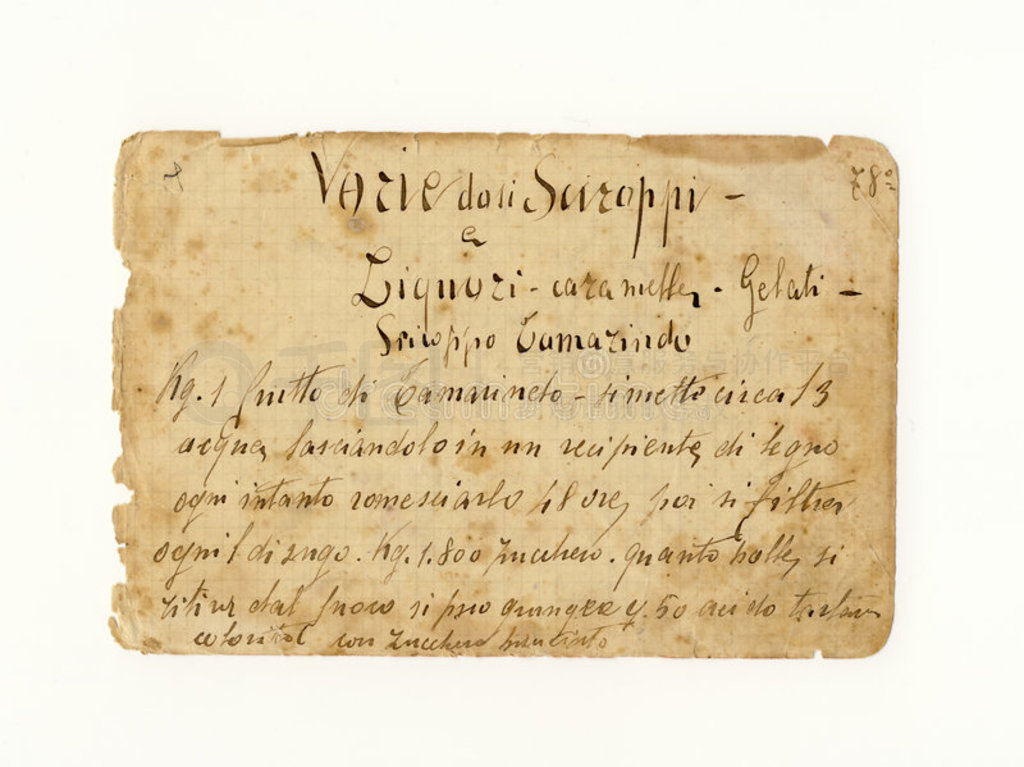 78°
Varie dosi Sciroppi -
e
Liquori - caramelle, - Gelati -
Sciroppo Tamarindo
Kg. 1 frutto di Tamarindo - si mette circa l 3
acqua, lasciandolo in un recipiente, di legno
ogni intanto rovesciarlo 48 ore, poi si filtra
ogni l di sugo. Kg. 1.800 zucchero. quanto bolle, si
ritira dal fuoco si può g. 50 acido
con zucchero bruciato